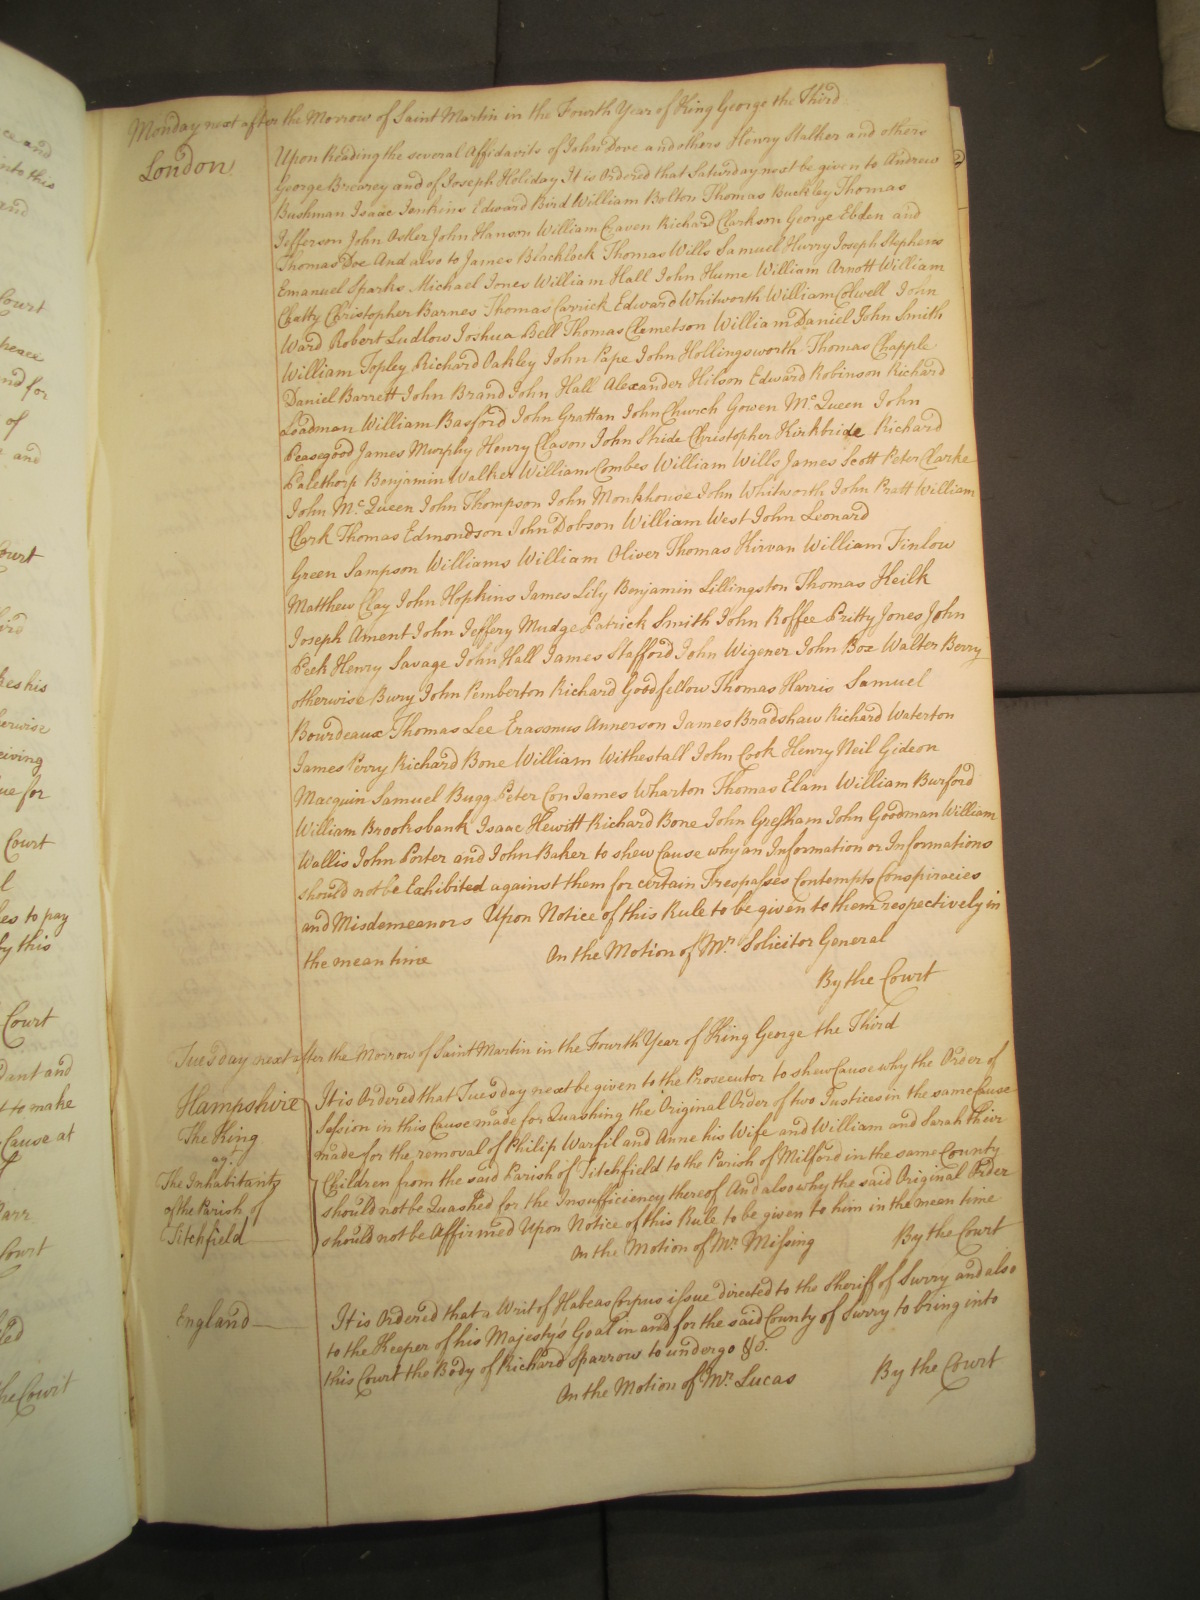 Monday next after the Morrow of Saint Martin in the Fourth Year of King George the Third
London
Upon Reading the several Affidavits of John Dove and others Henry Stalker and others
George Brearey and of Joseph Holiday It is Ordered that Saturday next be given to Andrew
Bushman Isaac Jenkins Edward Bird William Bolton Thomas Buckley Thomas
Jefferson John Osler John Hanson William Craven Richard Clarkson George Ebden and
Thomas Doe And also to James Blachlock Thomas Wills Samuel Hurry Joseph Stephens
Emanuel Sparks Michael Jones William Hall John Hume William Arnott William
Chatty Christopher Barnes Thomas Carrick Edward Whitworth William Colwell John
Ward Robert Ludlow Joshua Bell Thomas Clemetson William Daniel John Smith
William Topley Richard Oakley John Pape John Hollingsworth Thomas Chapple
Daniel Barrett John Brand John Hall Alexander Hilson Edward Robinson Richard
Loadman William Basford John Grattan John Church Gowen Mc. Queen John
Peasegood James Murphy Henry Clason John Stride Christopher Kirkbride Richard
Palethorp Benjamin Walker William Combes William Wills James Scott Peter Clarke
John Mc. Queen John Thompson John Monkhouse John Whitworth John Pratt William
Clark Thomas Edmondson John Dobson William West John Leonard
Green Sampson Williams William Oliver Thomas Kirvan William Finlow
Matthew Clay John Hopkins James Lily Benjamin Lillingston Thomas Heilk
Joseph Ament John Jeffery Mudge Patrick Smith John Roffee Pritty Jones John
Peek Henry Savage John Hall James Stafford John Wigener John Box Walter Berry
otherwise Bury John Pemberton Richard Goodfellow Thomas Harris Samuel
Bourdeaux Thomas Lee Erasmus Annerson James Bradshaw Richard Waterton
James Perry Richard Bone William Withestall John Cook Henry Neil Gideon
Macquin Samuel Bugg Peter Con James Wharton Thomas Elam William Burford
William Brooksbank Isaac Hewitt Richard Bone John Gresham John Goodman William
Wallis John Porter and John Baker to shew Cause why an Information or Informations
should not be Exhibited against them for certain Trespasses Contempts Conspiracies
and Misdemeanors Upon Notice of this Rule to be given to them respectively in
the mean time On the Motion of Mr. Solicitor General
By the Court
Tuesday next after the Morrow of Saint Martin in the Fourth Year of King George the Third
Hampshire
The King
agt.
The Inhabitants
of the Parish of
Titchfield
It is Ordered that Tuesday next be given to the Prosecutor to shew Cause why the Order of
Session in this Cause made for Quashing the Original Order of two Justices in the same Cause
made for the removal of Philip Warfil and Anne his Wife and William and Sarah their
Children from the said Parish of Titchfield to the Parish of Milford in the same County
should not be Quashed for the Insufficiency thereof And also why the said Original Order
should not be Affirmed Upon Notice of this Rule to be given to him in the mean time
On the Motion of Mr. Missing By the Court
England
It is Ordered that a Writ of Habeas Corpus issue directed to the Sheriff of Surry and also
to the Keeper of his Majesty's Goal in and for the said County of Surry to bring into
this Court the Body of Richard Sparrow to undergo &c.
On the Motion of Mr. Lucas By the Court
and
into this
and
Court
peace
and for
of
and
Court
erwise
eiving
ue for
Court
es to pay
by this
Court
dant and
t to make
Cause at
Court
the Court